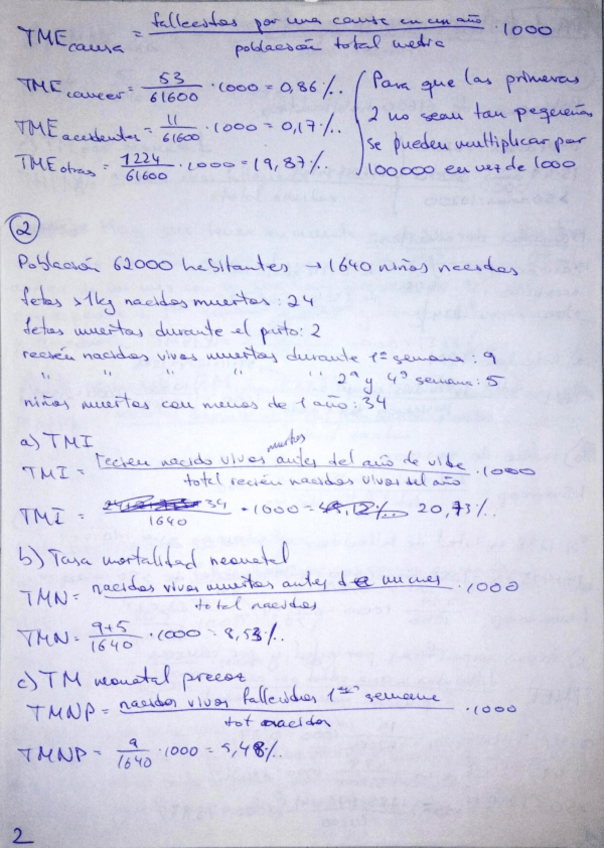 TME causa = fallecidos por una causa en un año / población total media · 1000
TME cancer = 53/61600 · 1000 = 0,86‰ Para que las primeras
TME accidentes = 11/61600 · 1000 = 0,17‰ 2 no sean tan pequeñas
se pueden multiplicar por
TME otras = 1224/61600 · 1000 = 19,87‰ 100000 en vez de 1000
2
Población 62000 habitantes → 1640 niños nacidos
fetos >1kg nacidos muertos: 24
fetos muertos durante el parto: 2
recién nacidos vivos muertos durante 1ª semana: 9
" " " " " 2ª y 4ª semana: 5
niños muertos con menos de 1 año: 34
a) TMI
TMI = recién nacido vivos muertos antes del año de vida / total recién nacidos vivos del año · 1000
TMI = 34/1640 · 1000 = 20,73‰
b) Tasa mortalidad neonatal
TMN = nacidos vivos muertos antes de un mes / total nacidos · 1000
TMN = 9+5/1640 · 1000 = 8,53‰
c) TM neonatal precoz
TMNP = nacidos vivos fallecidos 1ª semana / tot nacidos · 1000
TMNP = 9/1640 · 1000 = 5,48‰
2